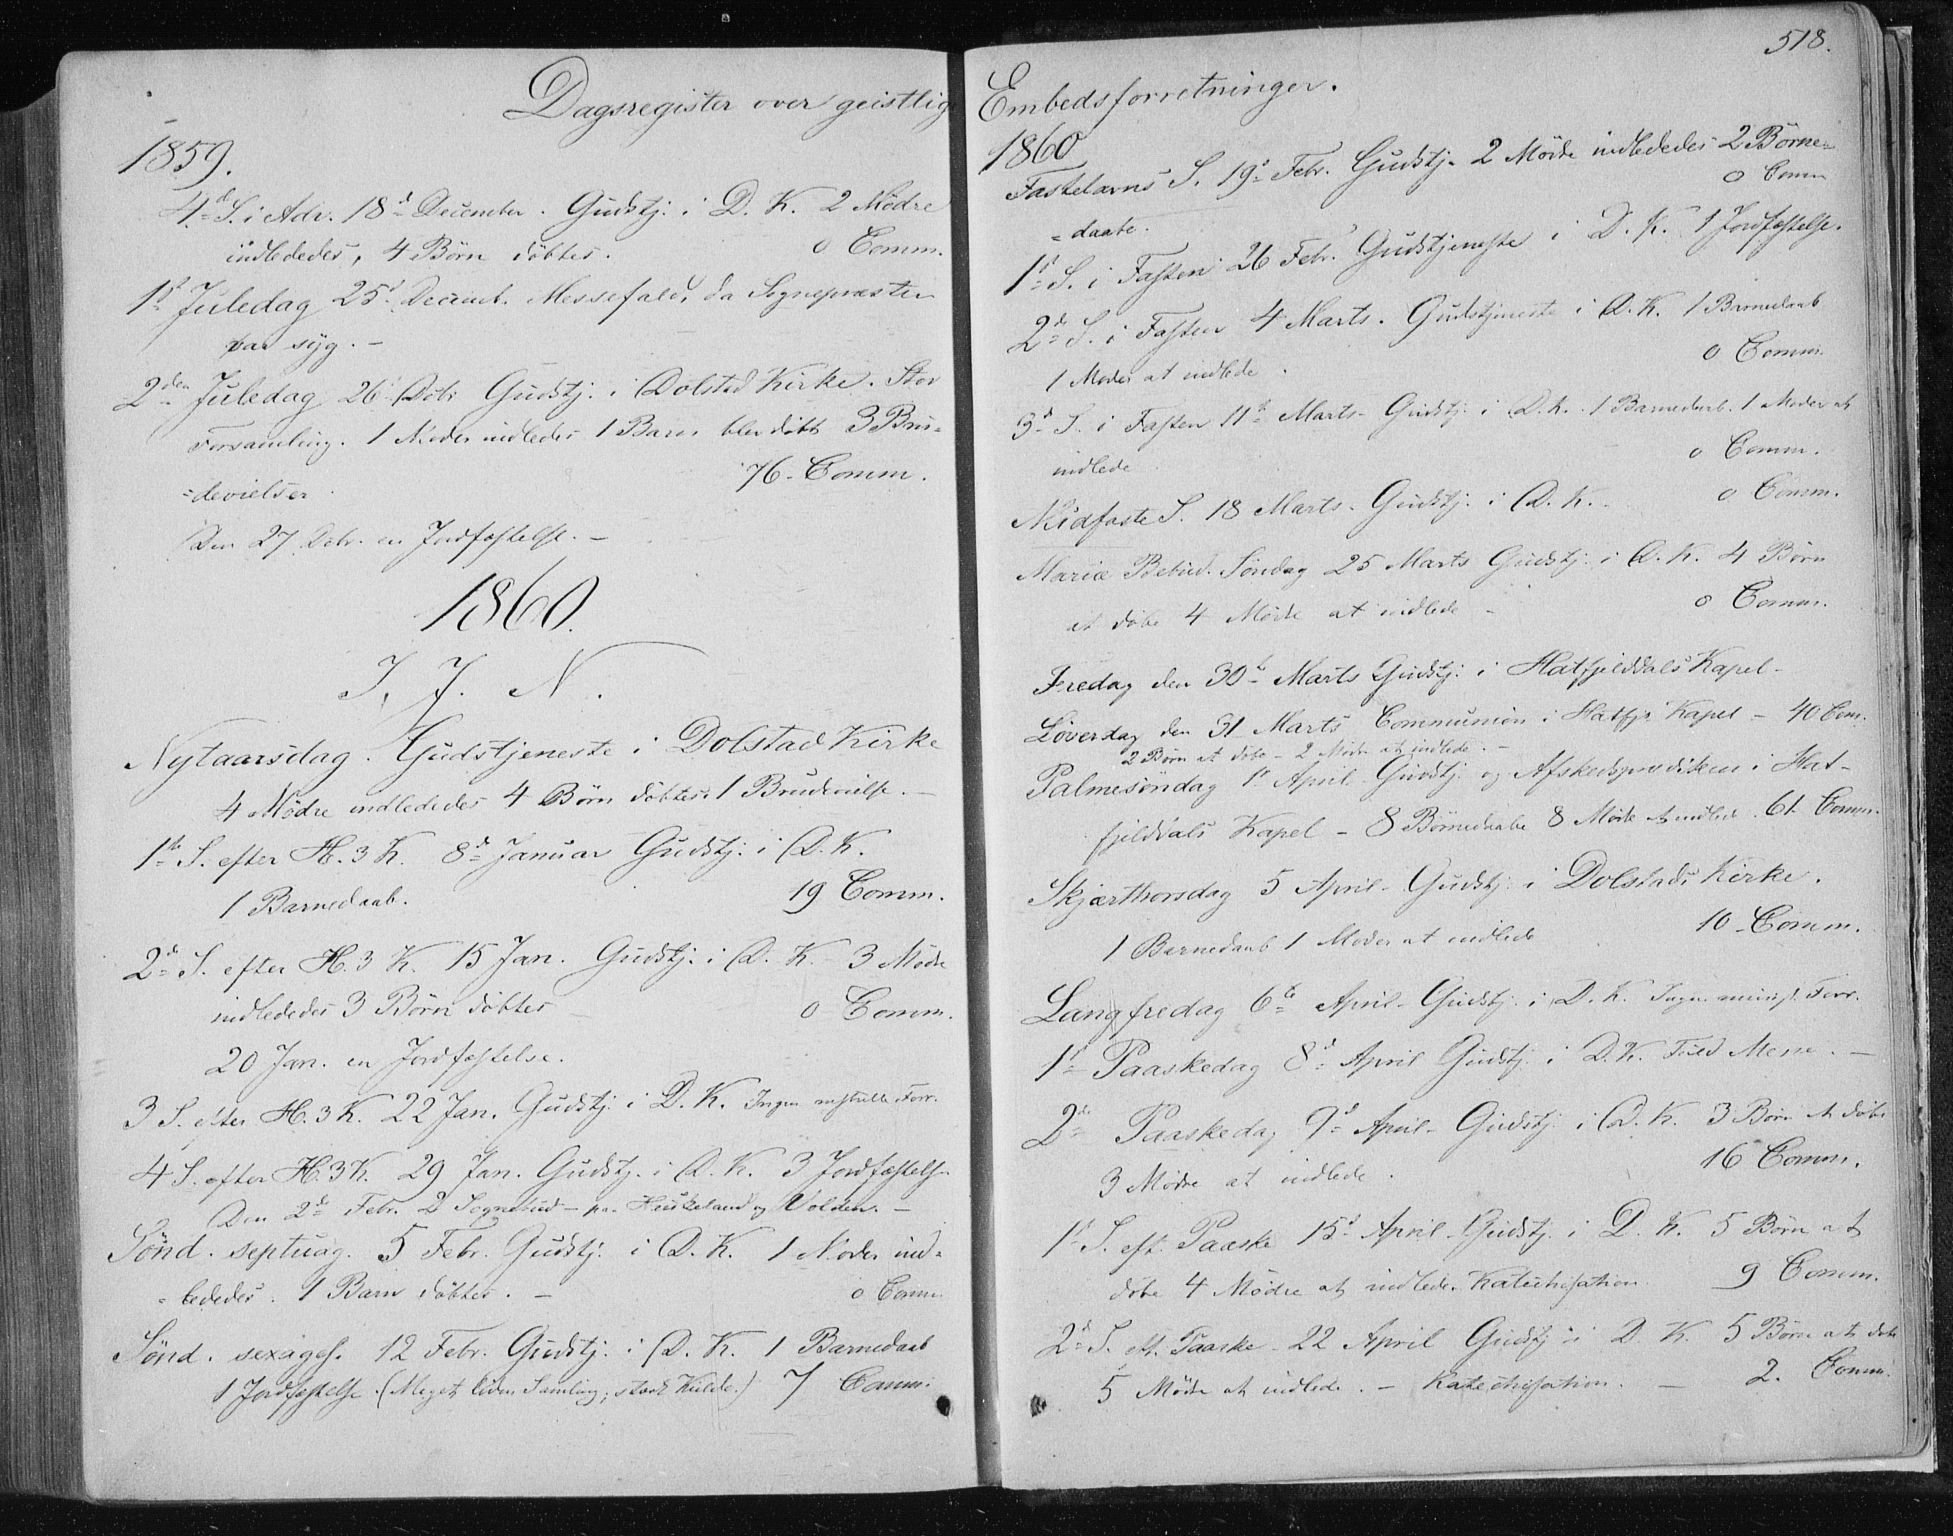 Dagsregister over geistlige
1859.
4d S. i Adv. 18d December. Gudstj. i D. K. 2 Mødre
indlededes, 4 Børn døbtes. 0 Comm.
1st Juledag 25d Decemb. Messefald, da Sognepresten
var syg. -
2den Juledag 26 Dcbr Gudstj. i Dolstad Kirke. Stor
Forsamling. 1 Moder indledes 1 Barn blev døbt 3 Bru-
-devielser. 76 - Comm.
Den 27 Dcbr. en Jordfæstelse. -
1860.
I. J. N.
Nytaarsdag. Gudstjeneste i Dolstad Kirke
4 Mødre indlededes 4 Børn døbtes. 1 Brudevielse. -
1ste S. efter H. 3 K. 8d Januar Gudstj. i D. K.
1 Barnedaab. 19 Comm.
2d S. efter H. 3 K. 15 Jan. Gudstj. i D. K. 3 Mødre
indlededes 3 Børn døbtes - 0 Comm.
20 Jan. en Jordfæstelse.
3 S. efter H. 3 K. 22 Jan. Gudstj. i D. K. Ingen Forr.
4 S. efter H. 3 K. 29 Jan. Gudstj. i D. K. 3 Jordfæstelse
Den 2de Febr. 2 Sognebud - paa og Volden. -
Sønd. septuag. 5 Febr. Gudstj. i D. K. 1 Moder ind-
-lededes. 1 Barn døbtes. - 0 Comm.
Sønd. sexages. 12 Febr. Gudstj. i D. K. 1 Barnedaab
1 Jordfæstelse. (Meget liden Samling; stærk Kulde.) 7 Comm.
518.
Embedsforretninger.
1860
Fastelavns S. 19d Febr. Gudstj. 2 Mødre indlededes 2 Børne-
-daabe. 0 Comm
1st S. i Fasten 26 Febr. Gudstjeneste i D. K. 1 Jordfæstelse.
2de S. i Fasten 4 Marts. Gudstjeneste i D. K. 1 Barnedaab
1 Moder at indlede. 0 Comm.
3d S. i Fasten 11te Marts. Gudstj. i D. K. 1 Barnedaab. 1 Moder at
indlede 0 Comm.
Midfaste S. 18 Marts. Gudstj. i D. K. 0 Comm.
Mariæ Bebud. Søndag 25 Marts Gudstj. i D. K. 4 Børn
at døbe 4 Mødre at indlede - 0 Comm.
Fredag den 30te Marts Gudstj. i Hatfjelddals Kapel -
Løverdag den 31 Marts Communion i Hatfj. Kapel - 40 Com.
2 Børn at døbe - 2 Mødre at indlede. -
Palmesøndag 1st April Gudstj. og Afskedsprediken i Hat-
fjelddals Kapel - 8 Børnedaabe 8 Mødre at indlede. 61. Comm.
Skjærthorsdag 5 April - Gudstj. i Dolstads Kirke.
1 Barnedaab 1 Moder at indlede 10 - Comm.
Langfredag 6te April - Gudstj. i D. K. Ingen Forr.
1st Paaskedag 8d April Gudstj. i D. K. Fuld Messe. -
2de Paaskedag 9d April - Gudstj. i D. K. 3 Børn at døbe
3 Mødre at indlede. 16 Comm.
1st S. eft. Paaske 15d April - Gudstj. i D. K. 5 Børn at
døbe 4 Mødre at indlede. Katechisation 9 Comm.
2d S. eft. Paaske - 22 April Gudstj. i D. K. 5 Børn at døbe
5 Mødre at indlede. - Katechisation. - 2. Comm.